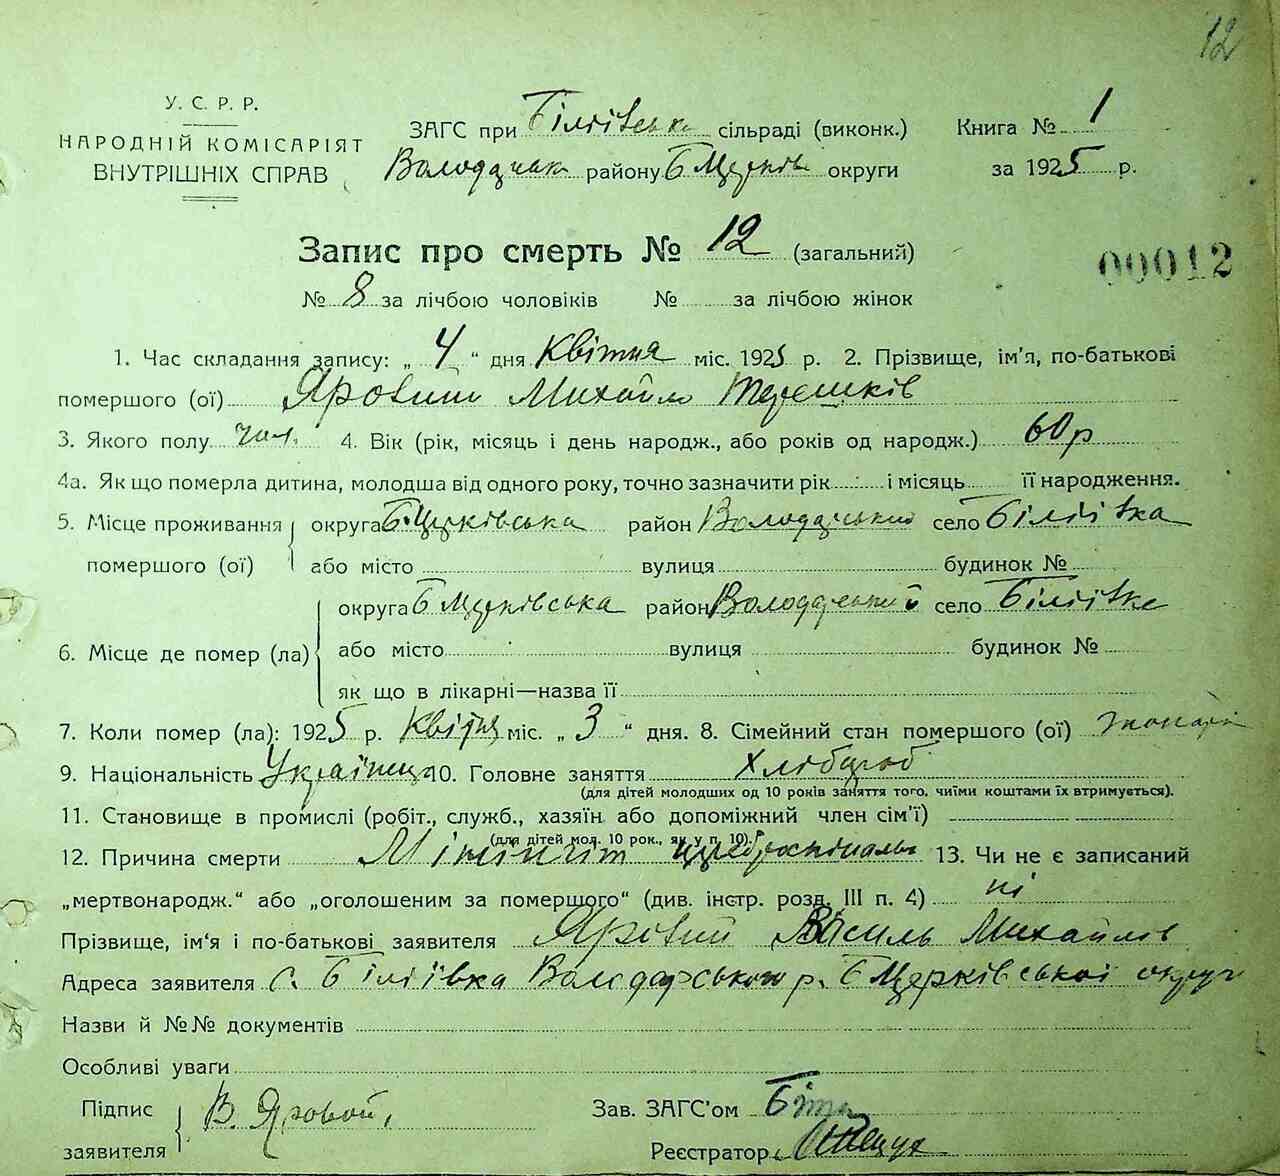 12
У. С. Р. Р.
НАРОДНІЙ КОМІСАРІЯТ
ВНУТРІШНІХ СПРАВ
ЗАГС при Біліївська сільраді (виконк.) Книга № 1
Володарська району Б Церків округи за 1925 р.
Запис про смерть № 12 (загальний)
00012
№ 8 за лічбою чоловіків № за лічбою жінок
1. Час складання запису: „ 4 “ дня Квітня міс. 1925 р. 2. Прізвище, ім'я, по-батькові
помершого (ої) Яровий Михайло Терешків
3. Якого полу чол. 4. Вік (рік, місяць і день народж., або років од народж.) 60 р
4а. Як що померла дитина, молодша від одного року, точно зазначити рік і місяць її народження.
5. Місце проживання округа Б.Церківська район Володарський село Біліївка
помершого (ої) або місто вулиця будинок №
округа Б Церківська район Володарський село Біліївка
6. Місце де помер (ла) або місто вулиця будинок №
як що в лікарні—назва її
7. Коли помер (ла): 1925 р. Квітня міс. „ 3 “ дня. 8. Сімейний стан помершого (ої) жонатий
9. Національність Українець 10. Головне заняття Хлібороб
(для дітей молодших од 10 років заняття того, чиїми коштами їх втримується).
11. Становище в промислі (робіт., служб., хазяїн або допоміжний член сім'ї)
(для дітей мол. 10 рок., як у п. 10).
12. Причина смерти Мінінгіт 13. Чи не є записаний
„мертвонародж.“ або „оголошеним за помершого“ (див. інстр. розд. III п. 4) ні
Прізвище, ім'я і по-батькові заявителя Яровий Василь Михайлов
Адреса заявителя с. Біліївка Володарського р. Б Церківської округи
Назви й №№ документів
Особливі уваги
Підпис В. Яровой, Зав. ЗАГС'ом
заявителя Реєстратор